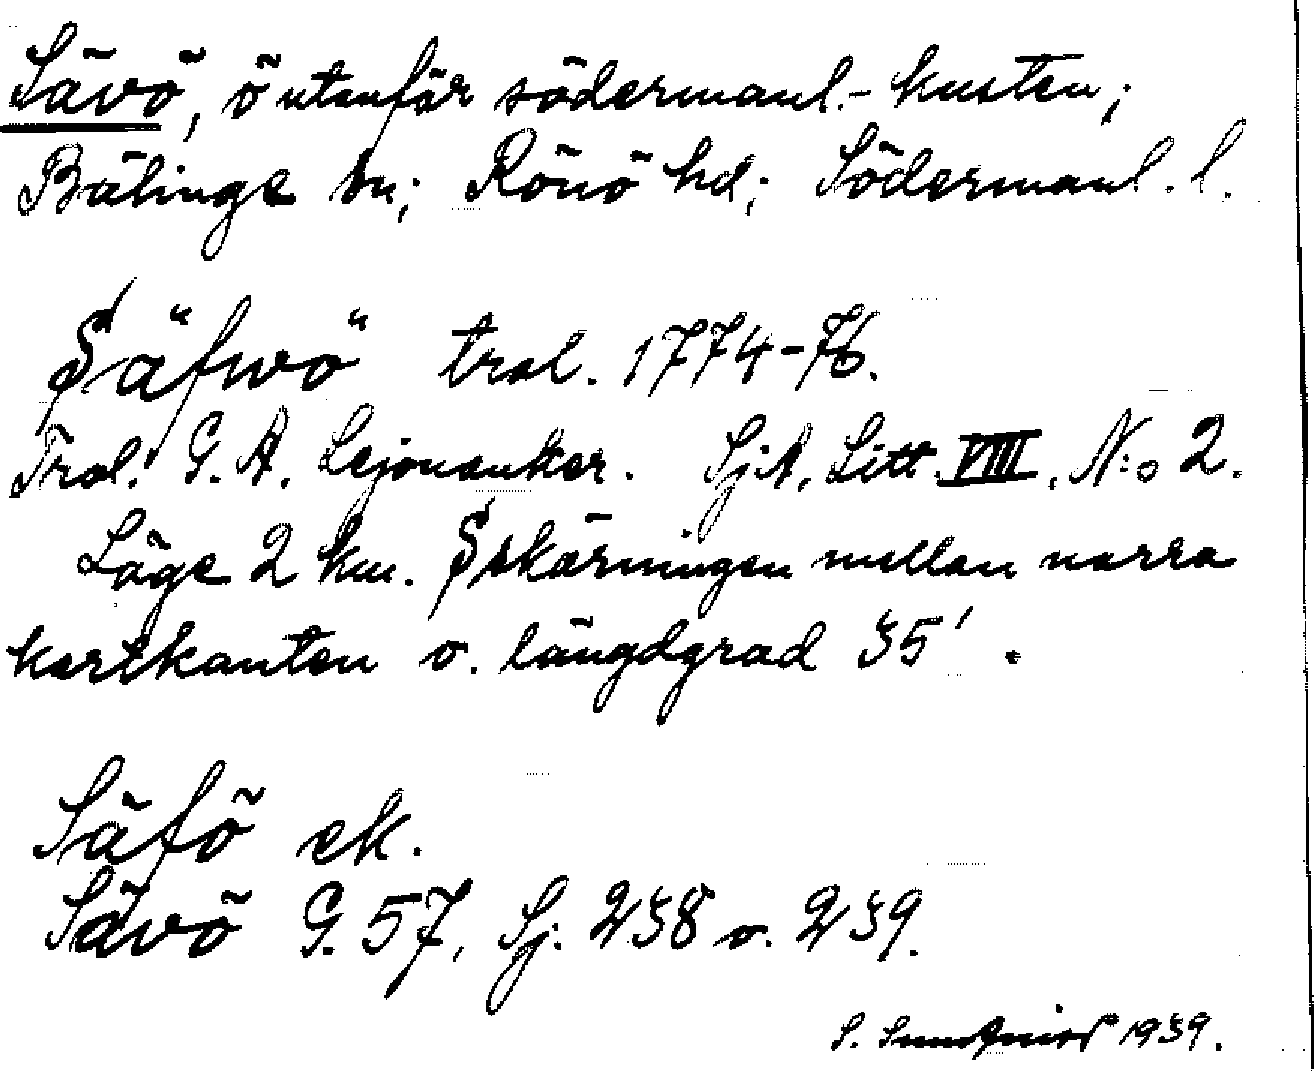 Sävö, ö utanför södermanl.-kusten;
Bälinge sn; Rönö hd; Södermanl. l.
Säfwö trol. 1774-76.
Trol. G. A. Lejonanker. SjA. Litt. VIII. N:o 2.
Läge 2 km. S skärningen mellan norra
kartkanten o. längdgrad 35' .
Säfö ek.
Sävö G. 57, Sj. 238 o. 239.
S. Sundqvist 1939.